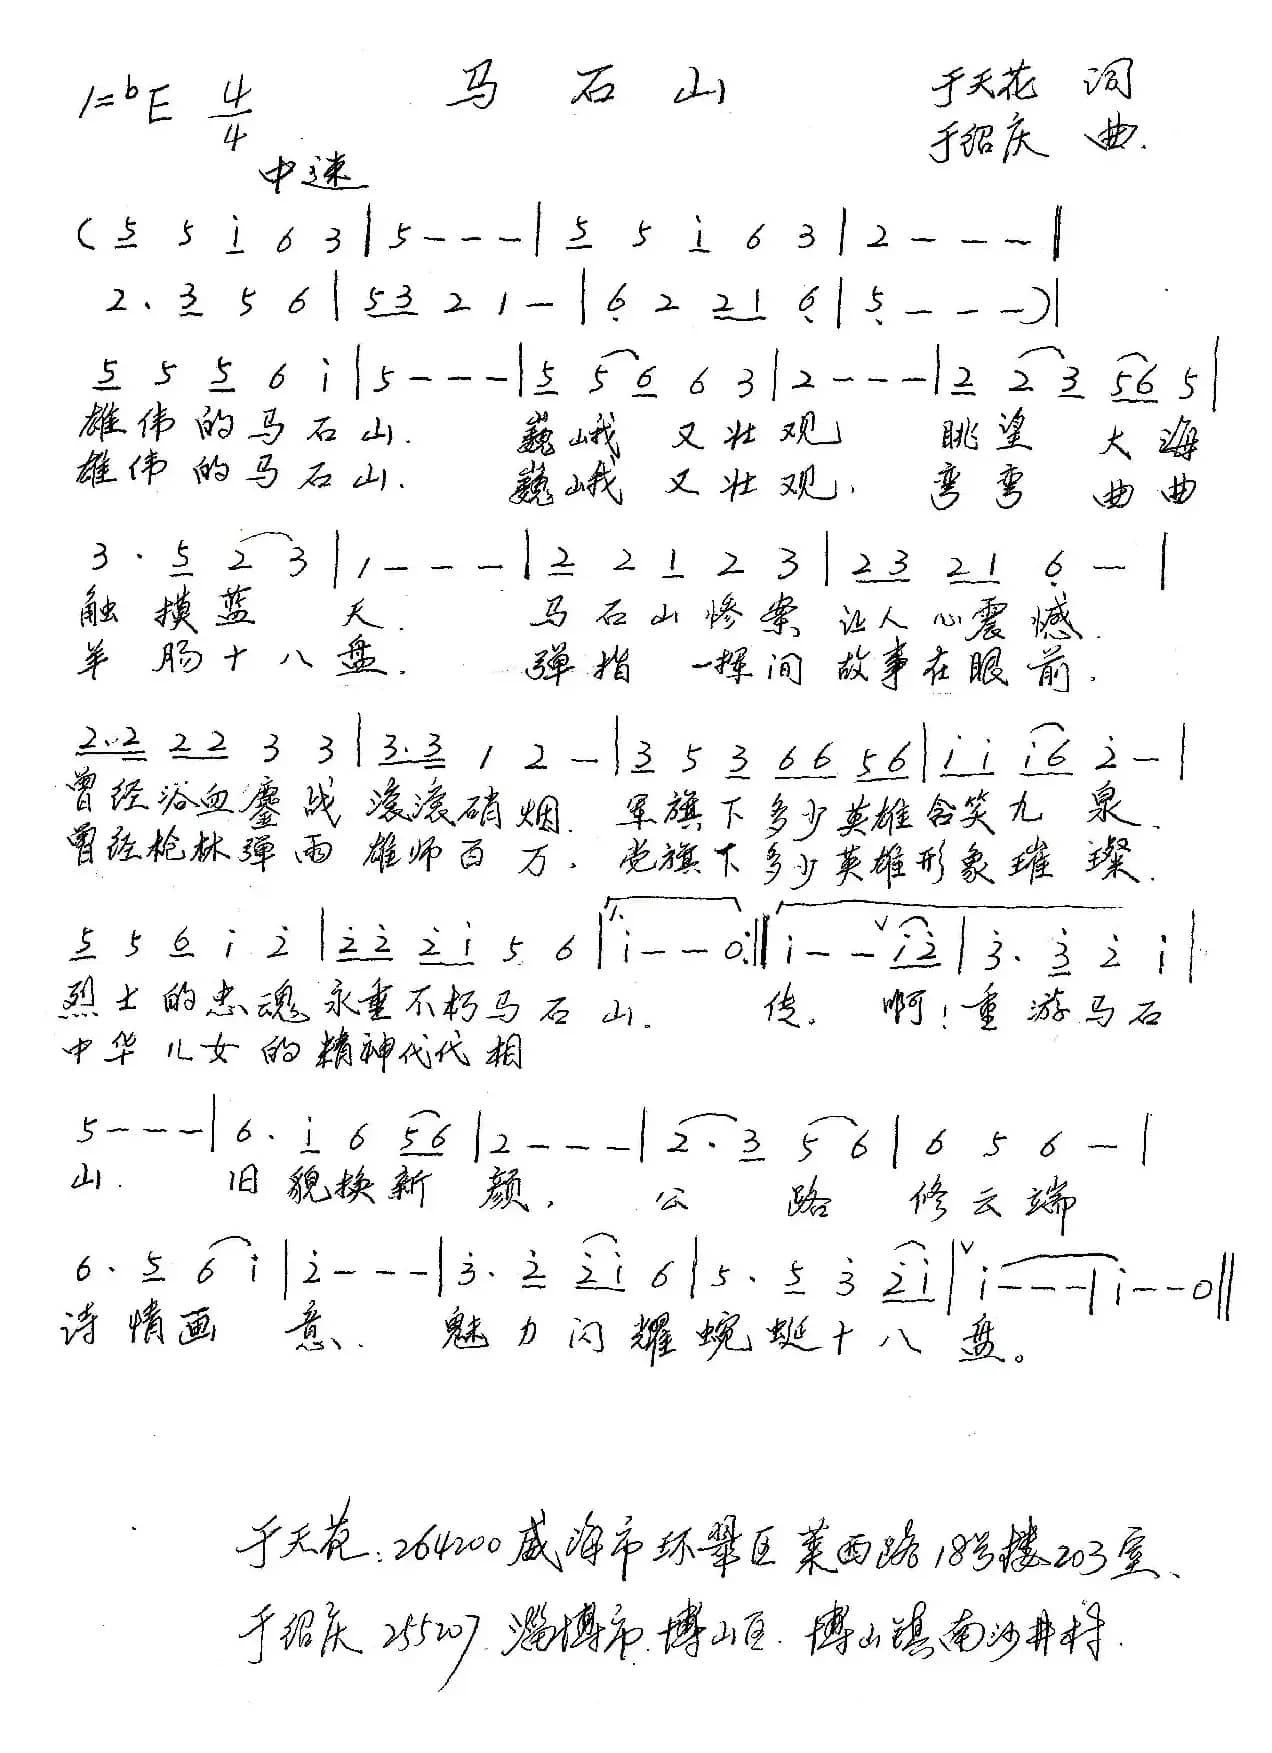 1=bE 4/4 马石山 于天花 词
于绍庆 曲.
中速
( 5 5 i 6 3 | 5 - - - | 5 5 i 6 3 | 2 - - - ‖
2 . 3 5 6 | 53 2 1 - | 6 2 21 6 | 5 - - - ) |
5 5 5 6 i | 5 - - - | 5 5 6 6 3 | 2 - - - | 2 2 3 56 5 |
雄伟的马石山. 巍峨又壮观 眺望大海
雄伟的马石山. 巍峨又壮观. 弯弯曲曲
3 . 5 2 3 | 1 - - - | 2 2 1 2 3 | 23 21 6 - |
触摸蓝天. 马石山惨案让人心震憾.
羊肠十八盘. 弹指一挥间故事在眼前.
2.2 22 3 3 | 3.3 1 2 - | 3 5 3 66 56 | ii i6 2 - |
曾经浴血鏖战滚滚硝烟. 军旗下多少英雄含笑九泉.
曾经枪林弹雨雄师百万. 党旗下多少英雄形象璀璨.
5 5 6 i 2 | 22 2i 5 6 | i - - 0 :‖ i - - i2 | 3 . 3 2 i |
烈士的忠魂永垂不朽马石山. 传。啊!重游马石
中华儿女的精神代代相
5 - - - | 6 . i 6 56 | 2 - - - | 2 . 3 5 6 | 6 5 6 - |
山. 旧貌换新颜. 公路修云端
6 . 5 6 i | 2 - - - | 3 . 2 2i 6 | 5 . 5 3 2i | i - - - | i - - 0 ‖
诗情画意、魅力闪耀蜿蜒十八盘。
于天花:264200威海市环翠区莱西路18号楼203室、
于绍庆 255207 淄博市.博山区.博山镇南沙井村.